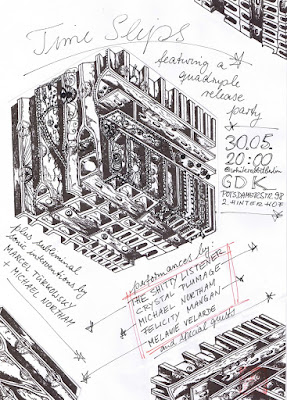 Time Slips
featuring a
quadruple
release
party
30.05.
20:00
GDK
POTSDAMERSTR. 98
2. HINTERHOF
plus subliminal
sonic interventions by
MARCEL TÜRKOWSKY
+ MICHAEL NORTHAM
performances by:
THE SHITTY LISTENER
CRYSTAL PLUMAGE
MICHAEL NORTHAM
FELICITY MANGAN
MELANIE VELARDE
and special guests